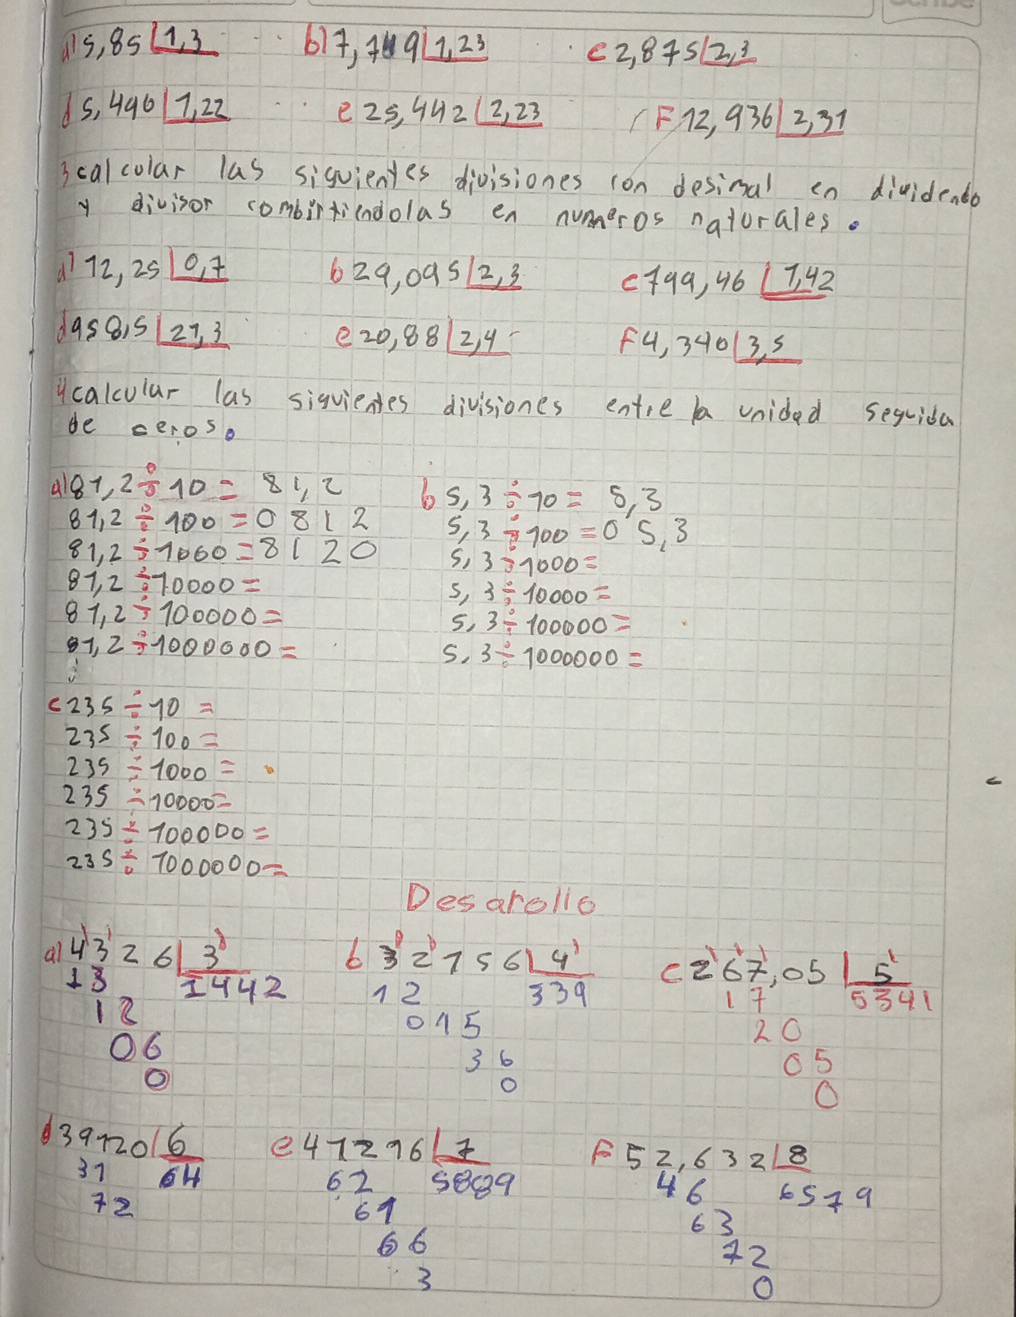 a) 5,85 1,3 b) 7,749 1,23 c 2,875 2,3
d 5,490 1,22 e 25,442 2,23 F 12,936 2,31
3 calcular las siguientes divisiones con desimal en dividendo
y divisor combirtiendolas en numeros naturales.
a) 12,25 0,7 b 29,095 2,3 c 799,46 1,42
d 958,5 21,3 e 20,88 2,4 F 4,340 3,5
4 calcular las siguientes divisiones entre la unidad seguida
de ceros.
a) 81,2 ÷ 10 = 81,2 b 5,3 ÷ 10 = 5,3
81,2 ÷ 100 = 0812 5,3 ÷ 100 = 05,3
81,2 ÷ 1000 = 8120 5,3 ÷ 1000 =
81,2 ÷ 10000 = 5,3 ÷ 10000 =
81,2 ÷ 100000 = 5,3 ÷ 100000 =
81,2 ÷ 1000000 = 5,3 ÷ 1000000 =
c 235 ÷ 10 =
235 ÷ 100 =
235 ÷ 1000 =
235 ÷ 10000 =
235 ÷ 100000 =
235 ÷ 1000000 =
Desarollo
a) 4326 3 b 32156 4 c 267,05 5
13 1442 12 339 17 5341
12 015 20
06 36 05
0 0 0
d 39120 6 e 41216 7 F 52,632 8
31 64 62 5889 46 6579
72 61 63
66 72
3 0